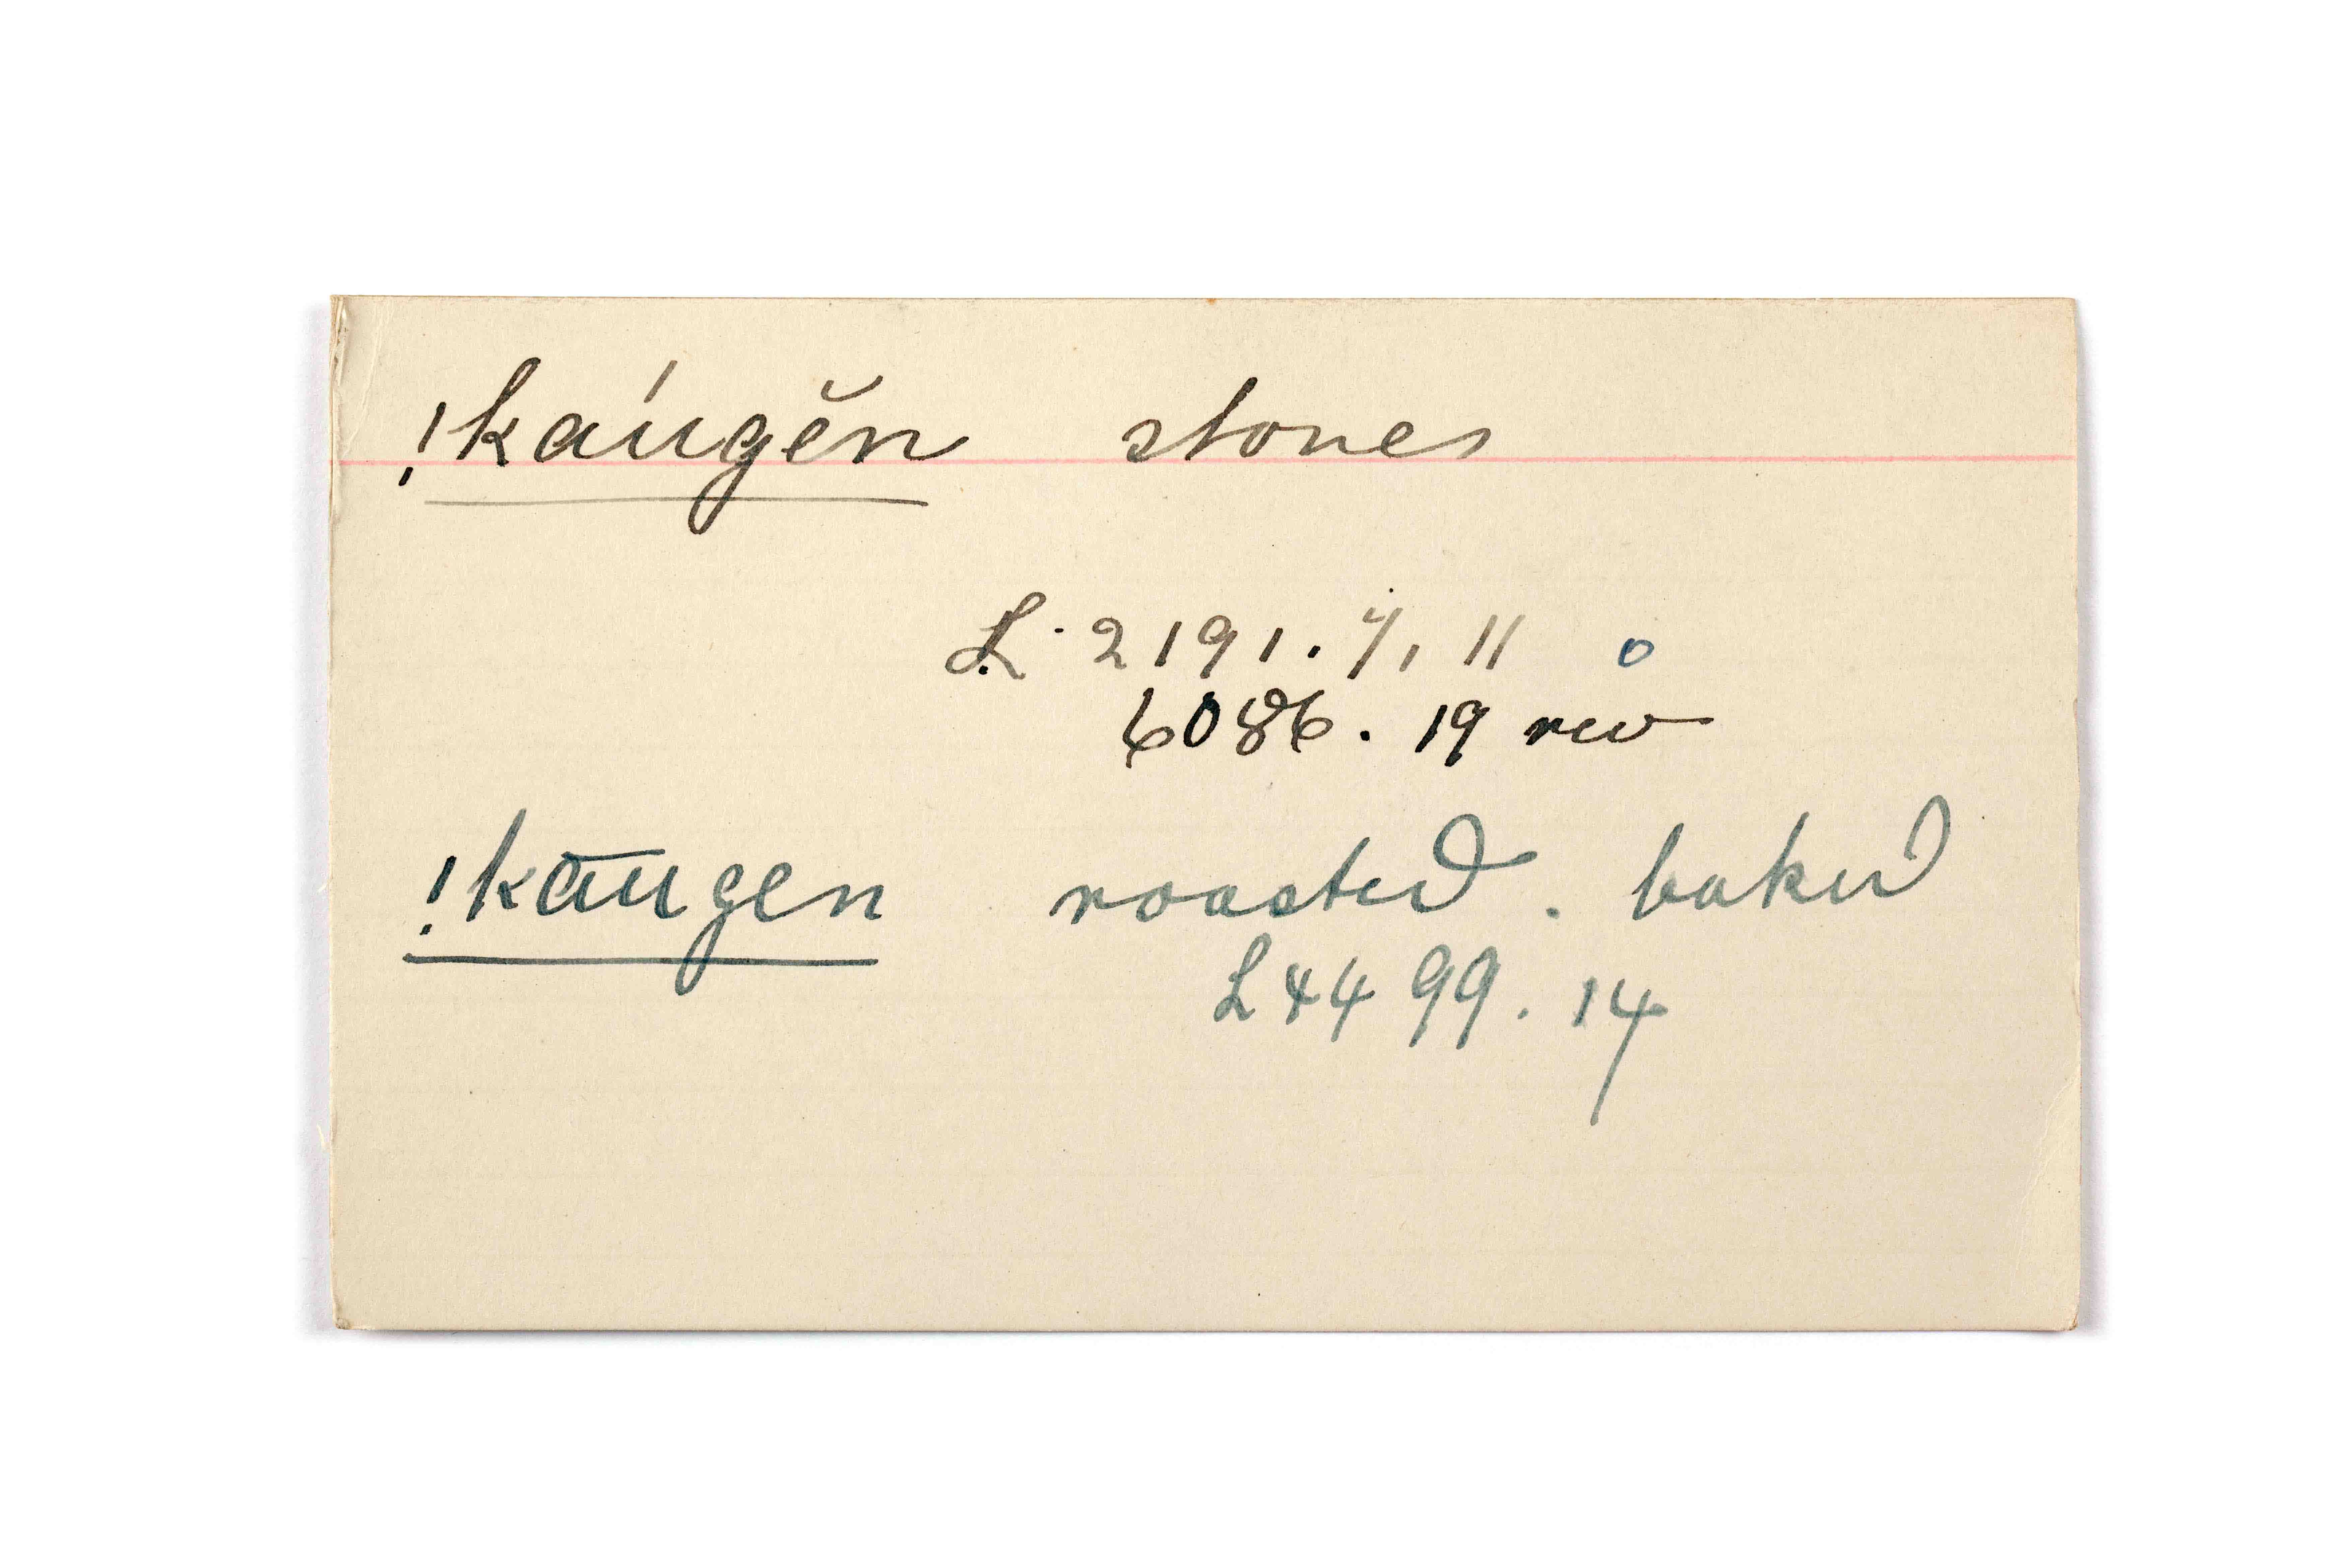 !kaúgĕn stones
L. 2191. 4/1 11 o
6086. 19 rev
!kāugen roasted. baked
L 4499. 14